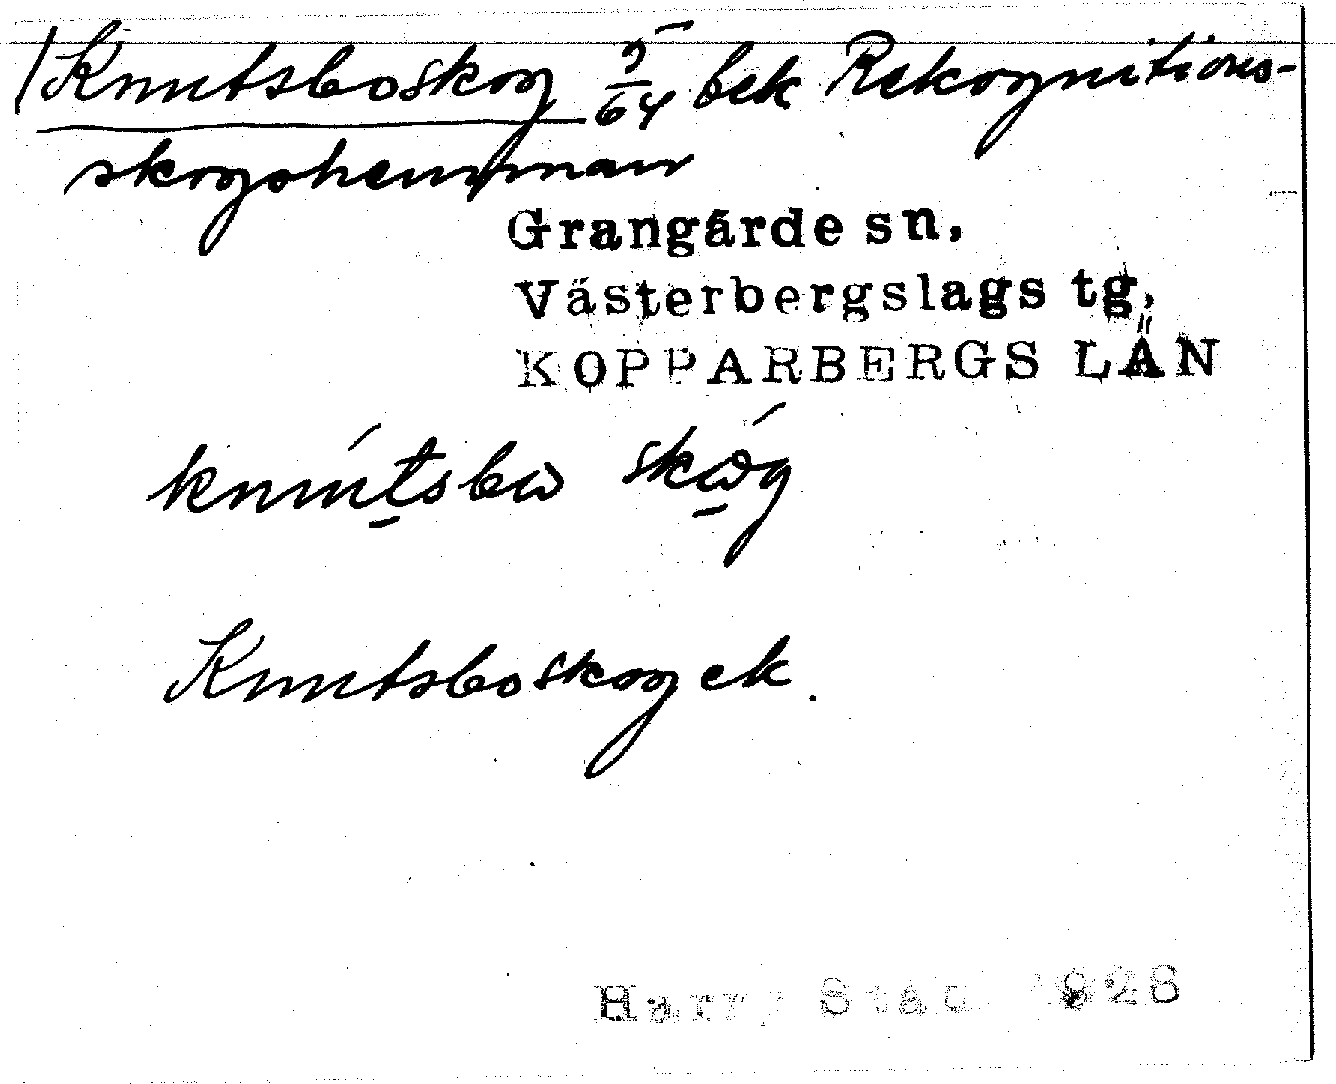 /Knutsboskog 5/64 bek Rekognitions-
skogshemman
Grangärde sn.
Västerbergslags tg.
KOPPARBERGS LÄN
knutsbω skωg
Knutsboskog ek.
Harry Ståhl 1928